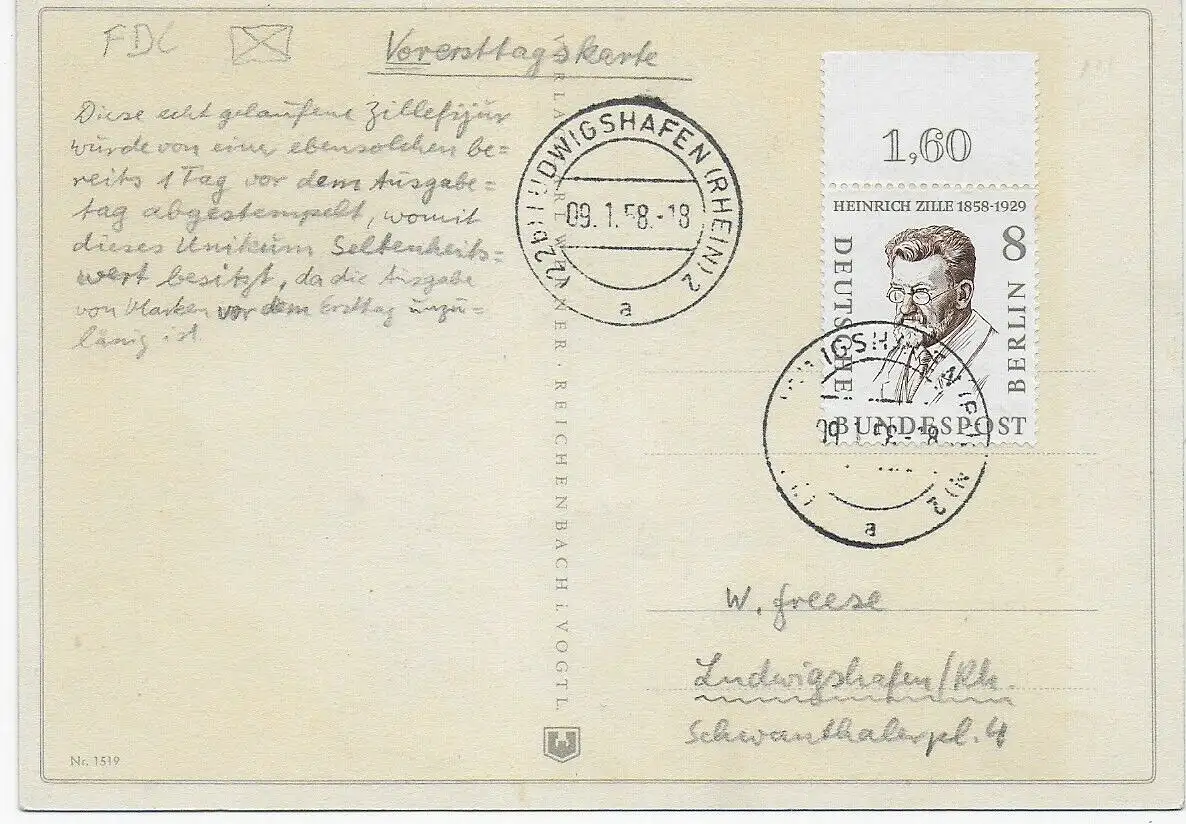 FDC
Vorersttagskarte
Diese echt gelaufene Zillefigur
wurde von einer ebensolchen be=
reits 1 Tag vor dem Ausgabe=
tag abgestempelt, womit
dieses Unikum Seltenheits=
wert besitzt, da die Ausgabe
von Marken vor dem Ersttag unzu=
länig ist.
(22b) LUDWIGSHAFEN (RHEIN) 2
09.1.58.-18
a
1,60
HEINRICH ZILLE 1858-1929
8
DEUTSCHE
BUNDESPOST
BERLIN
a
REICHENBACH i. VOGTL.
W. Freese
Ludwigshafen/Rh.
Schwanthalerpl. 4
Nr. 1519